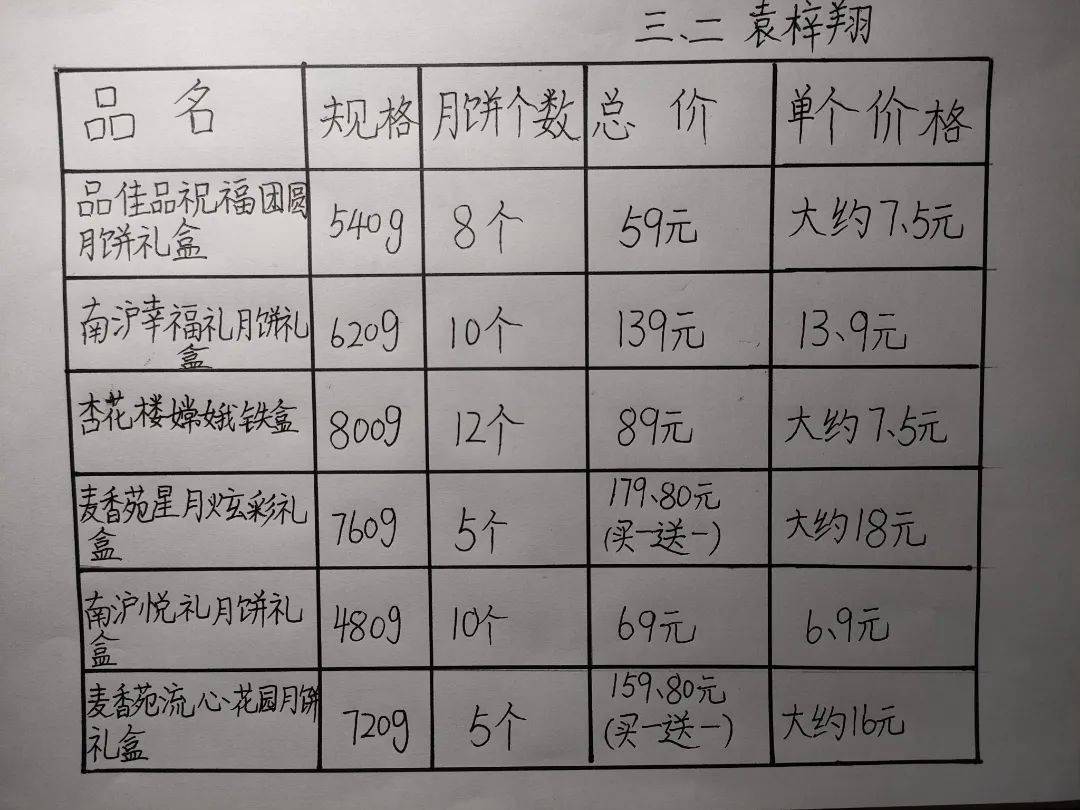 三、二 袁梓翔
品名 规格 月饼个数 总价 单个价格
品佳品祝福团圆
月饼礼盒 540g 8个 59元 大约7.5元
南沪幸福礼月饼礼
盒 620g 10个 139元 13.9元
杏花楼嫦娥铁盒 800g 12个 89元 大约7.5元
麦香苑星月炫彩礼
盒 760g 5个 179.80元
(买一送一) 大约18元
南沪悦礼月饼礼
盒 480g 10个 69元 6.9元
麦香苑流心花园月饼
礼盒 720g 5个 159.80元
(买一送一) 大约16元